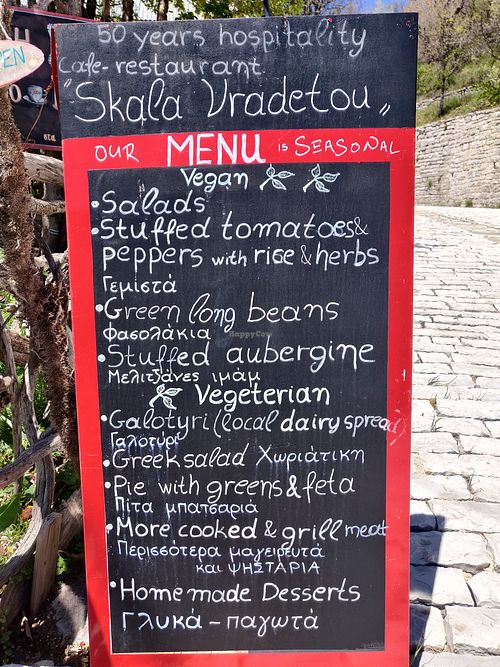 50 years hospitality
Cafe-restaurant
"Skala Vradetou„
OUR MENU is SEASONAL
Vegan
•Salads
•Stuffed tomatoes&
peppers with rice & herbs
Γεμιστά
•Green long beans
Φασολάκια
•Stuffed aubergine
Μελιτζάνες ιμάμ
Vegeterian
•Galotyri(local dairy spread)
Γαλοτύρι
•Greek salad Χωριάτικη
•Pie with greens & feta
Πίτα μπατσαριά
•More cooked & grill meat
Περισσότερα μαγειρευτά
και ΨΗΣΤΑΡΙΑ
•Home made Desserts
Γλυκά - παγωτά
PEN
HappyCow